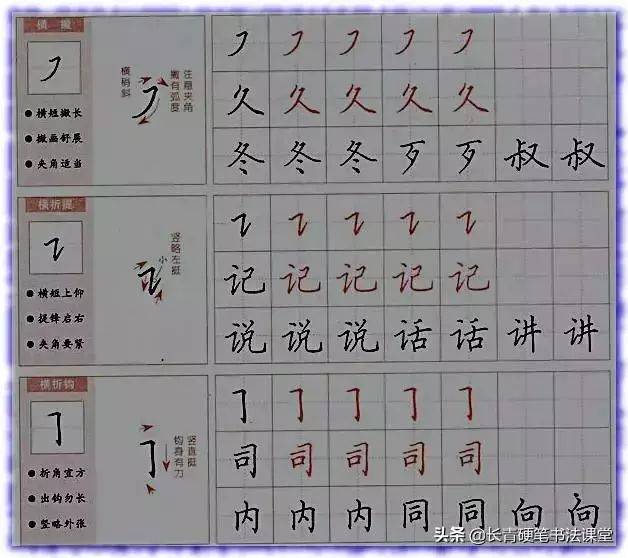 横撇
㇇
横短撇长
撇画舒展
夹角适当
横稍斜
撇有弧度
注意夹角
㇇ ㇇ ㇇ ㇇ ㇇
久 久 久 久 久
冬 冬 冬 歹 歹 叔 叔
横折提
㇊
横短上仰
提锋启右
夹角要紧
竖略左挺
小
㇊ ㇊ ㇊ ㇊ ㇊
记 记 记 记 记
说 说 说 话 话 讲 讲
横折钩
𠃌
折角宜方
出钩勿长
竖略外张
竖直挺
钩身有力
𠃌 𠃌 𠃌 𠃌 𠃌
司 司 司 司 司
内 内 内 同 同 向 向
头条 @长青硬笔书法课堂